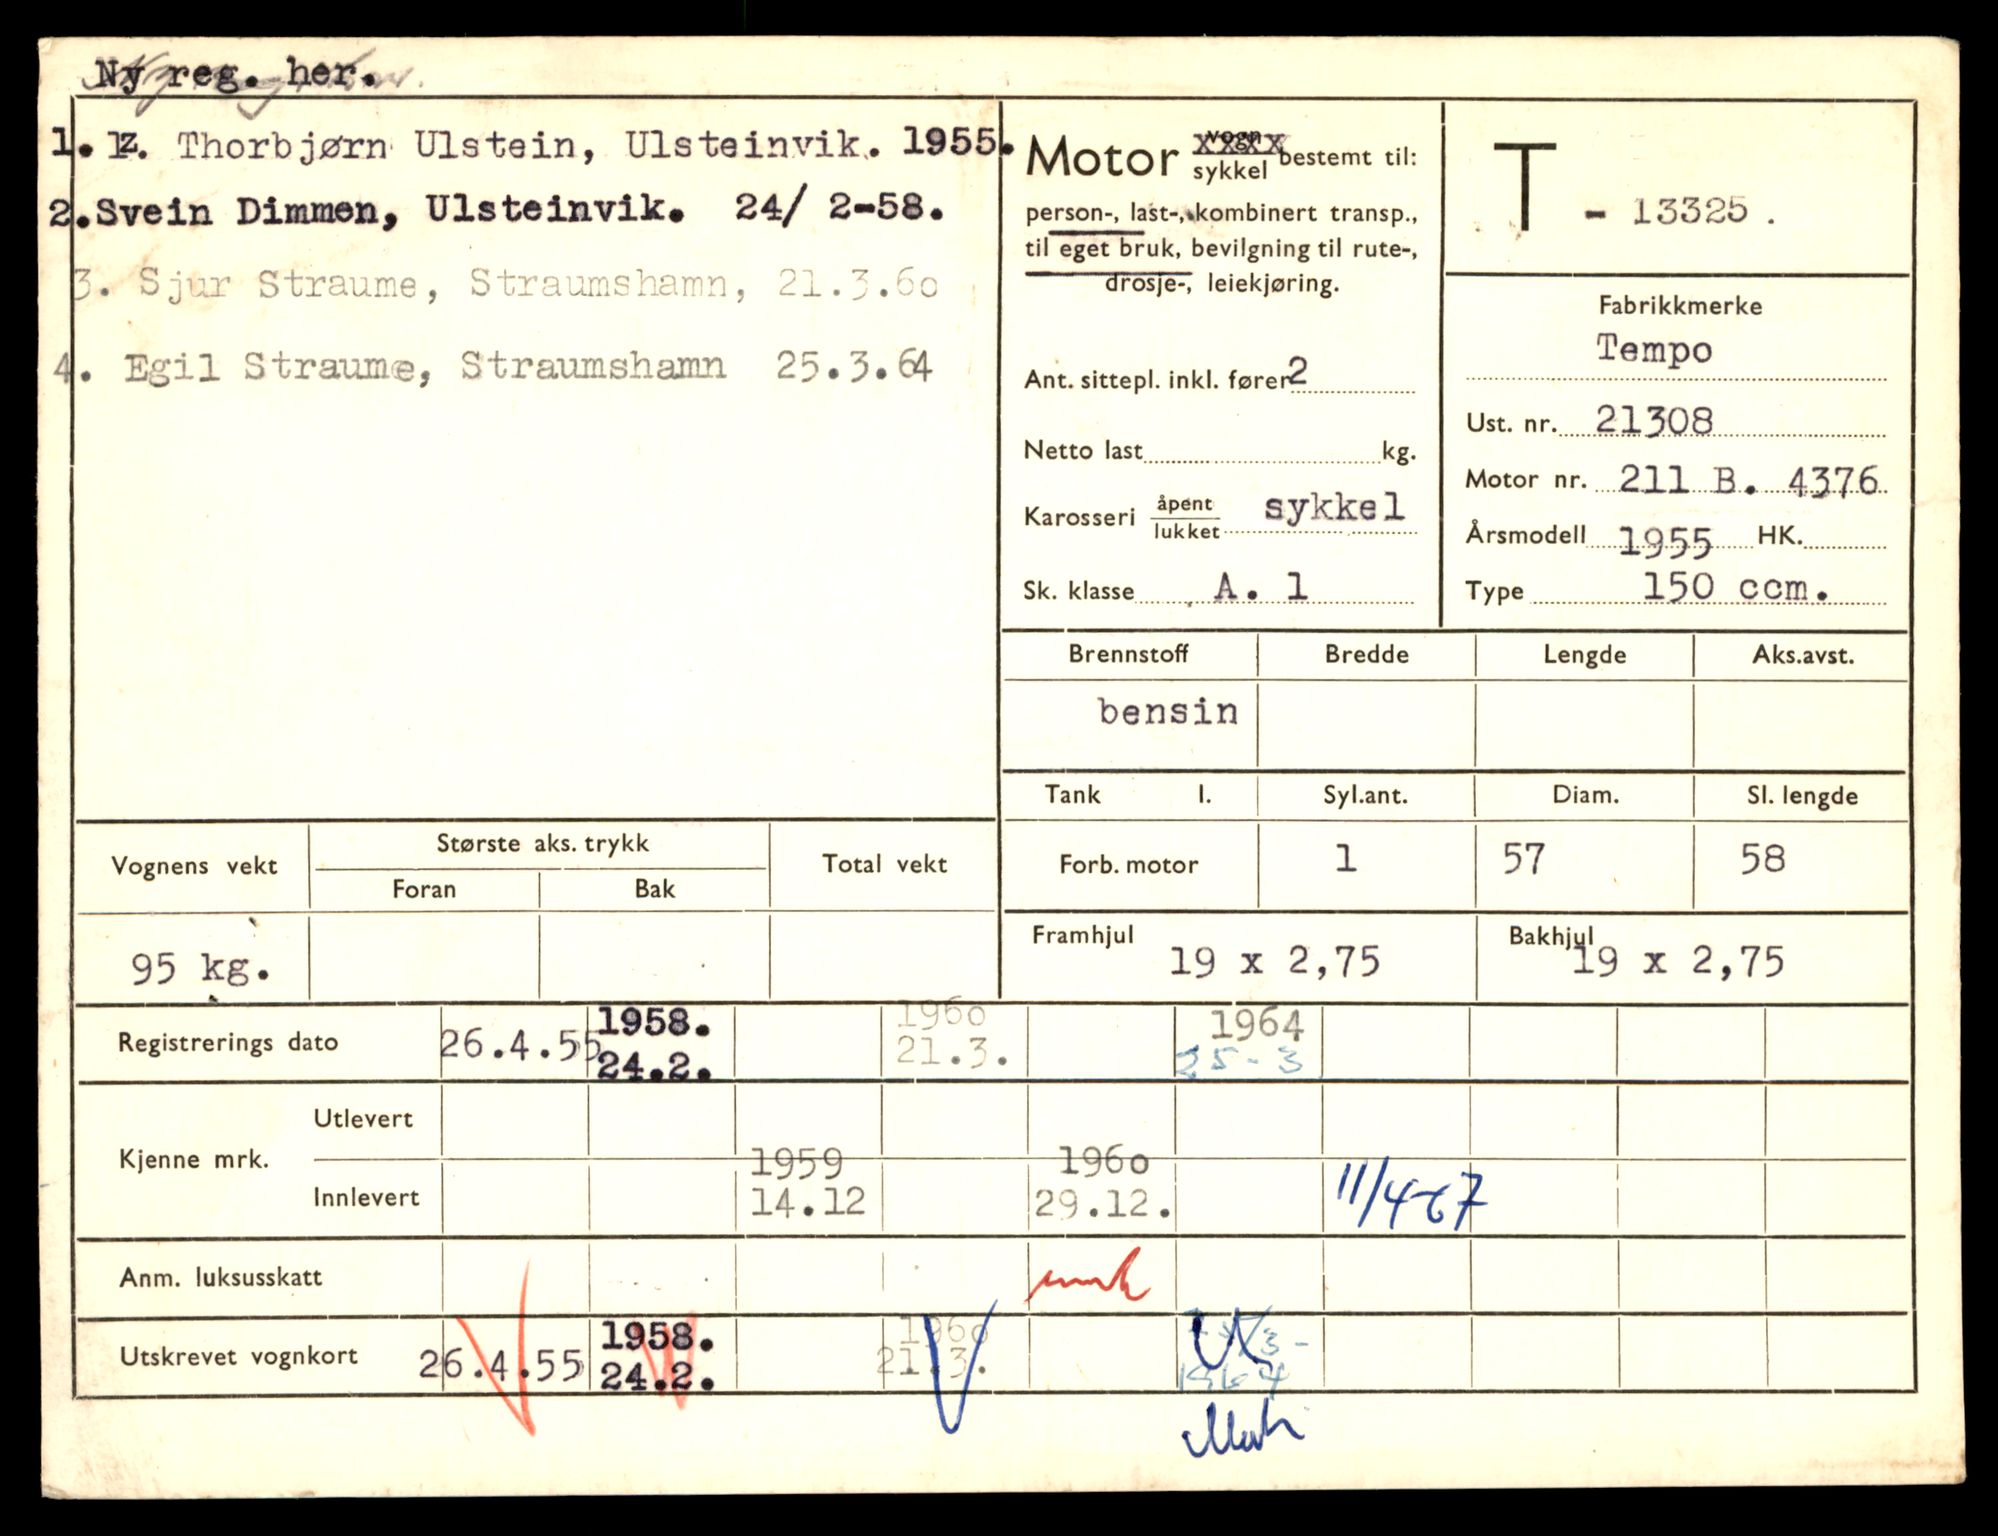 Ny reg. her.
1. Thorbjørn Ulstein, Ulsteinvik. 1955.
2. Svein Dimmen, Ulsteinvik. 24/ 2-58.
3. Sjur Straume, Straumshamn, 21.3.60
4. Egil Straume, Straumshamn 25.3.64
Motor vogn sykkel bestemt til:
person-, last-, kombinert transp.,
til eget bruk, bevilgning til rute-,
drosje-, leiekjøring.
Ant. sittepl. inkl. fører 2
Netto last kg.
Karosseri åpent lukket sykkel
Sk. klasse A. 1
T - 13325 .
Fabrikkmerke
Tempo
Ust. nr. 21308
Motor nr. 211 B. 4376
Årsmodell 1955 HK.
Type 150 ccm.
Brennstoff Bredde Lengde Aks.avst.
bensin
Tank l. Syl.ant. Diam. Sl. lengde
Forb. motor 1 57 58
Framhjul 19 x 2,75 Bakhjul 19 x 2,75
Vognens vekt Største aks. trykk Total vekt
Foran Bak
95 kg.
Registrerings dato 26.4.55 1958. 24.2. 1960 21.3. 1964 25-3
Kjenne mrk. Utlevert
Innlevert 1959 14.12 1960 29.12. 11/4-67
Anm. luksusskatt
Utskrevet vognkort 26.4.55 1958. 24.2. 1960 21.3. 1964